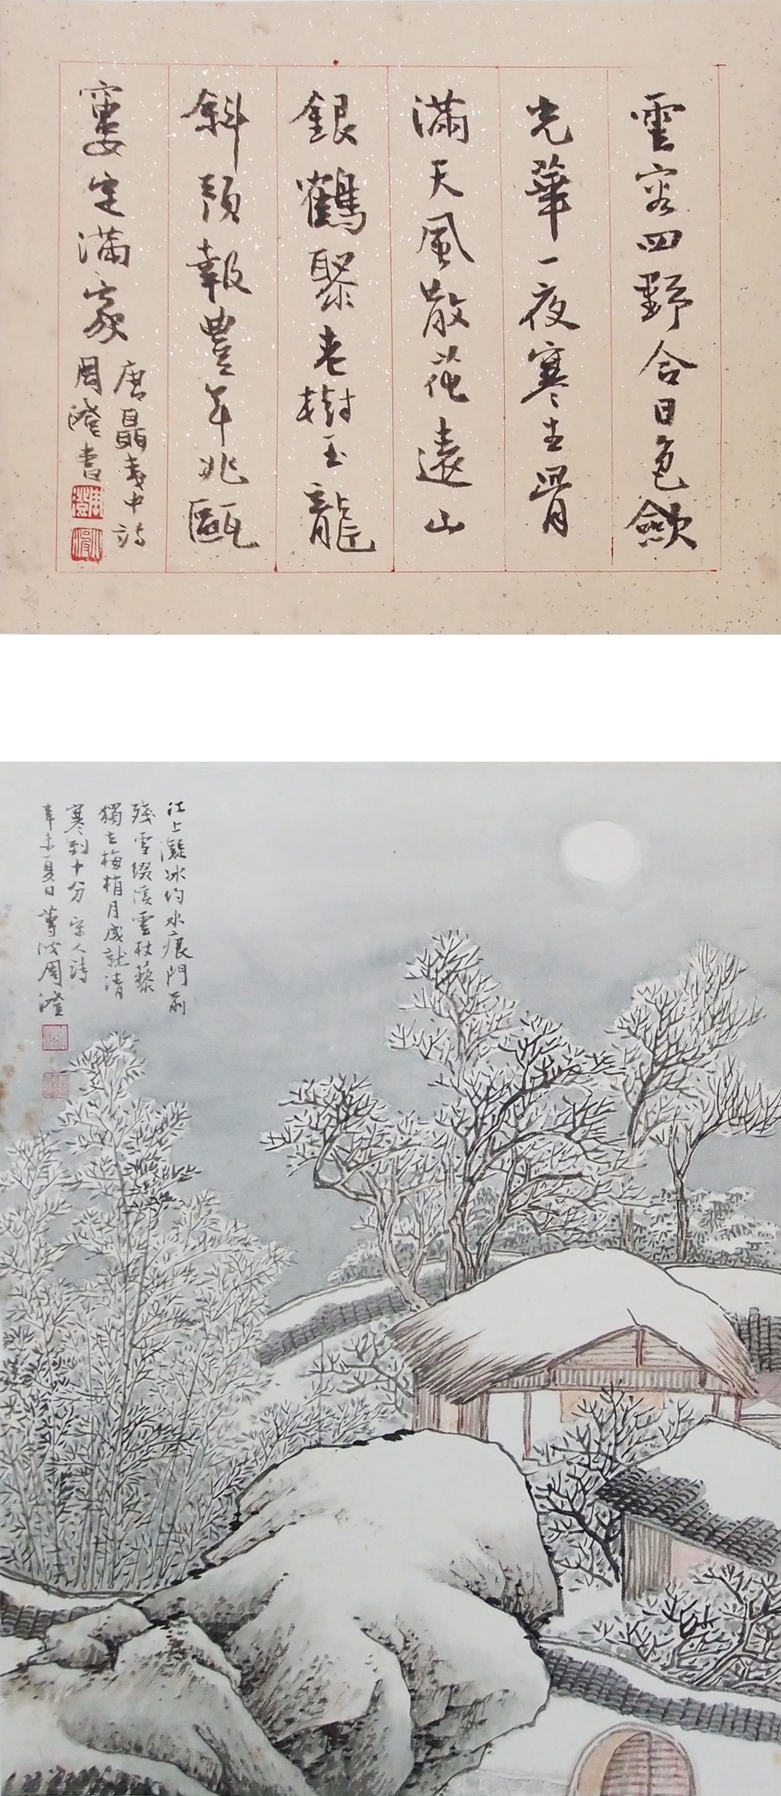 雲容四野合日色斂
光華一夜寒生骨
滿天風散花遠山
銀鶴聚老樹玉龍
斜預報豐年兆甌
窶定滿家
唐聶夷中詩
周澄書
江上凝冰約水痕門前
殘雪綴溪雲杖藜
獨立梅梢月成就清
寒到十分 宋人詩
辛未夏日 蓴波周澄